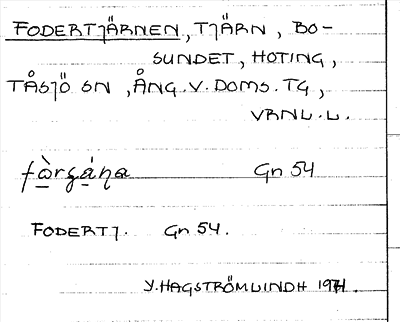 FODERTJÄRNEN, TJÄRN, BO-
SUNDET, HOTING,
TÅSJÖ SN, ÅNG. V. DOMS. TG,
VRNL. L.
Gn 54
FODERTJ. Gn 54.
Y. HAGSTRÖMLINDH 1971.